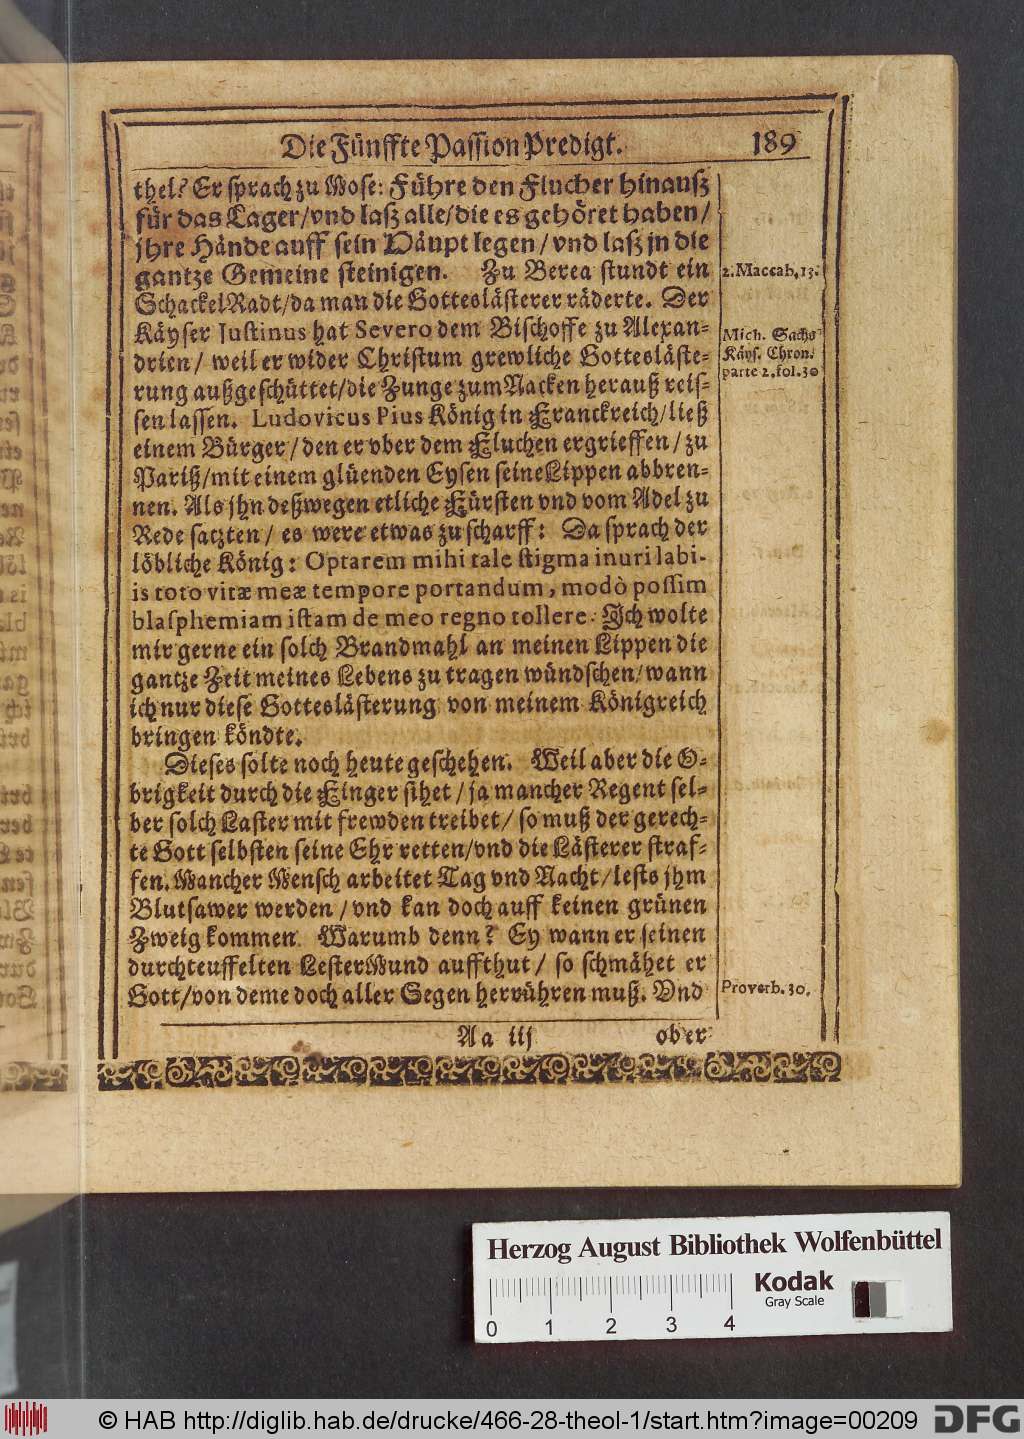 Die Fünffte Passion Predigt. 189
thel? Er sprach zu Mose: Führe den Flucher hinausz
für das Lager/vnd lasz alle/die es gehöret haben/
jhre Hände auff sein Häupt legen/vnd lasz jn die
gantze Gemeine steinigen. Zu Berea stundt ein
2. Maccab. 13.
SchackelRadt/da man die Gotteslästerer räderte. Der
Käyser Justinus hat Severo dem Bischoffe zu Alexan-
Mich. Sachs
drien/ weil er wider Christum grewliche Gotteslästе-
Käys. Chron.
rung außgeschüttet/die Zunge zum Nacken herauß reis-
parte 2. fol. 30
sen lassen. Ludovicus Pius König in Franckreich/ließ
einem Bürger/den er vber dem Fluchen ergrieffen/zu
Pariß/mit einem glüenden Eysen seine Lippen abbren-
nen. Als jhn deßwegen etliche Fürsten vnd vom Adel zu
Rede satzten/ es were etwas zu scharff: Da sprach der
löbliche König: Optarem mihi tale stigma inuri labi-
is toto vitæ meæ tempore portandum, modò possim
blasphemiam istam de meo regno tollere. Ich wolte
mir gerne ein solch Brandmahl an meinen Lippen die
gantze Zeit meines Lebens zu tragen wündschen/wann
ich nur diese Gotteslästerung von meinem Königreich
bringen köndte.
Dieses solte noch heute geschehen. Weil aber die O-
brigkeit durch die Finger sihet/ja mancher Regent sel-
ber solch Laster mit frewden treibet/so muß der gerech-
te Gott selbsten seine Ehr retten/vnd die Lästerer straf-
fen. Mancher Mensch arbeitet Tag vnd Nacht/lests jhm
Blutsawer werden/vnd kan doch auff keinen grünen
Zweig kommen. Warumb denn? Ey wann er seinen
durchteuffelten LesterMund auffthut/ so schmähet er
Gott/von deme doch aller Segen herrühren muß. Vnd
Proverb. 30.
Aa iij ober
Herzog August Bibliothek Wolfenbüttel
Kodak
Gray Scale
0 1 2 3 4
© HAB http://diglib.hab.de/drucke/466-28-theol-1/start.htm?image=00209 DFG